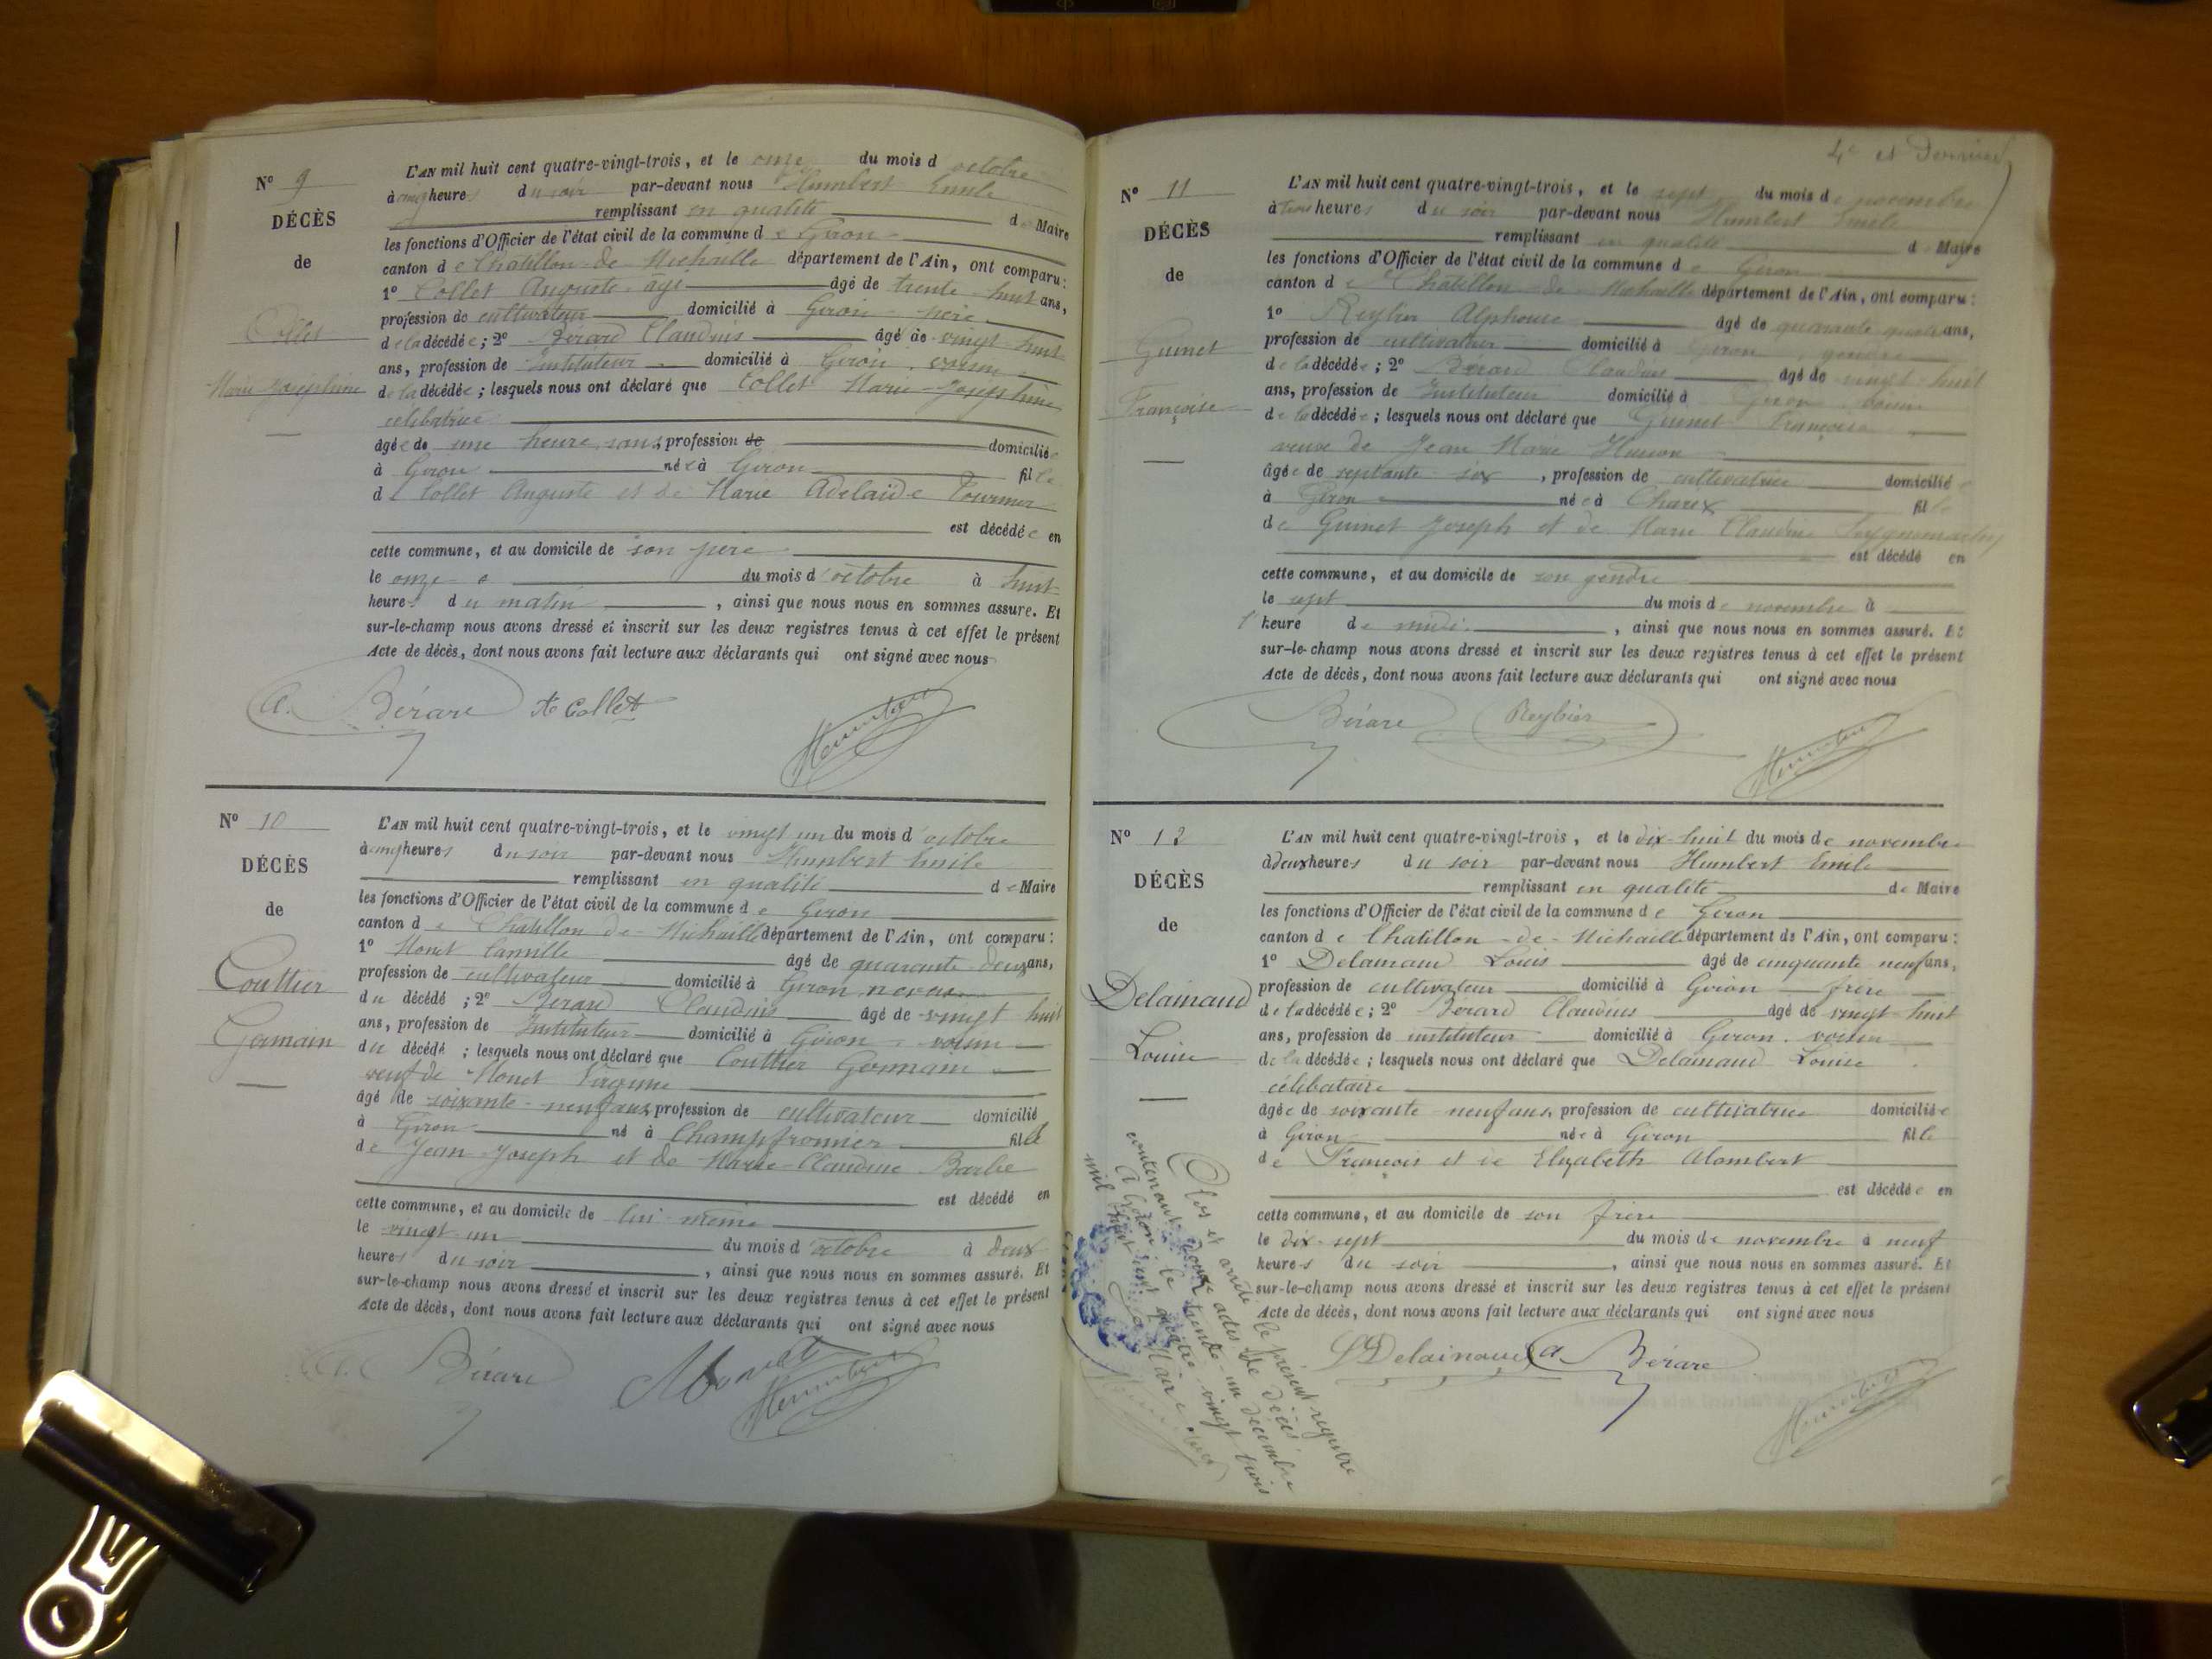 N° 9
DÉCÈS
de
Collet
Marie Joséphine
L'AN mil huit cent quatre-vingt-trois, et le onze du mois d'octobre
à cinq heures du soir par-devant nous Humbert Emile
remplissant en qualité de Maire
les fonctions d'Officier de l'état civil de la commune de Giron
canton de Chatillon-de-Michaille département de l'Ain, ont comparu :
1° Collet Auguste âgé âgé de trente-huit ans,
profession de cultivateur domicilié à Giron père
de la décédée ; 2° Bérard Claudius âgé de vingt-huit
ans, profession de Instituteur domicilié à Giron, voisin
de la décédée ; lesquels nous ont déclaré que Collet Marie-Joséphine
célibatrice
âgée de une heure, sans profession de domiciliée
à Giron née à Giron fille
de Collet Auguste et de Marie Adelaïde Tournier
est décédée en
cette commune, et au domicile de son père
le onze du mois d'octobre à huit
heures du matin, ainsi que nous nous en sommes assuré. Et
sur-le-champ nous avons dressé et inscrit sur les deux registres tenus à cet effet le présent
Acte de décès, dont nous avons fait lecture aux déclarants qui ont signé avec nous
Bérard Collet Humbert
N° 10
DÉCÈS
de
Couttier
Germain
L'AN mil huit cent quatre-vingt-trois, et le vingt un du mois d'octobre
à cinq heures du soir par-devant nous Humbert Emile
remplissant en qualité de Maire
les fonctions d'Officier de l'état civil de la commune de Giron
canton de Chatillon-de-Michaille département de l'Ain, ont comparu :
1° Monet Camille âgé de quarante-deux ans,
profession de cultivateur domicilié à Giron neveu
du décédé ; 2° Bérard Claudius âgé de vingt huit
ans, profession de Instituteur domicilié à Giron voisin
du décédé ; lesquels nous ont déclaré que Couttier Germain
veuf de Monet Virginie
âgé de soixante-neuf ans, profession de cultivateur domicilié
à Giron né à Champfromier fils
de Jean-Joseph et de Marie-Claudine Barbe
est décédé en
cette commune, et au domicile de lui-même
le vingt-un du mois d'octobre à deux
heures du soir, ainsi que nous nous en sommes assuré. Et
sur-le-champ nous avons dressé et inscrit sur les deux registres tenus à cet effet le présent
Acte de décès, dont nous avons fait lecture aux déclarants qui ont signé avec nous
Bérard Monet Humbert
4e et Dernier
N° 11
DÉCÈS
de
Guinet
Françoise
L'AN mil huit cent quatre-vingt-trois, et le sept du mois de novembre
à trois heures du soir par-devant nous Humbert Emile
remplissant en qualité de Maire
les fonctions d'Officier de l'état civil de la commune de Giron
canton de Chatillon-de-Michaille département de l'Ain, ont comparu :
1° Reybier Alphonse âgé de quarante-quatre ans,
profession de cultivateur domicilié à Giron, gendre
de la décédée ; 2° Bérard Claudius âgé de vingt-huit
ans, profession de Instituteur domicilié à Giron voisin
de la décédée ; lesquels nous ont déclaré que Guinet Françoise
veuve de Jean Marie
âgée de septante-six, profession de cultivatrice domiciliée
à Giron née à Charix fille
de Guinet Joseph et de Marie Claudine
est décédé en
cette commune, et au domicile de son gendre
le sept du mois de novembre à
1 heure de midi, ainsi que nous nous en sommes assuré. Et
sur-le-champ nous avons dressé et inscrit sur les deux registres tenus à cet effet le présent
Acte de décès, dont nous avons fait lecture aux déclarants qui ont signé avec nous
Bérard Reybier Humbert
N° 12
DÉCÈS
de
Delainaud
Louise
L'AN mil huit cent quatre-vingt-trois, et le dix-huit du mois de novembre
à deux heures du soir par-devant nous Humbert Emile
remplissant en qualité de Maire
les fonctions d'Officier de l'état civil de la commune de Giron
canton de Chatillon-de-Michaille département de l'Ain, ont comparu :
1° Delainaud Louis âgé de cinquante neuf ans,
profession de cultivateur domicilié à Giron frère
de la décédée ; 2° Bérard Claudius âgé de vingt-huit
ans, profession de instituteur domicilié à Giron. voisin
de la décédée ; lesquels nous ont déclaré que Delainaud Louise
célibataire
âgée de soixante-neuf ans, profession de cultivatrice domiciliée
à Giron née à Giron fille
de François et de Elizabeth Alombert
est décédée en
cette commune, et au domicile de son frère
le dix-sept du mois de novembre à neuf
heures du soir, ainsi que nous nous en sommes assuré. Et
sur-le-champ nous avons dressé et inscrit sur les deux registres tenus à cet effet le présent
Acte de décès, dont nous avons fait lecture aux déclarants qui ont signé avec nous
Delainaud Bérard Humbert
Clos et arrêté le présent registre
contenant douze actes de décès.
A Giron le trente-un décembre
mil huit cent quatre-vingt trois
Le Maire
Humbert